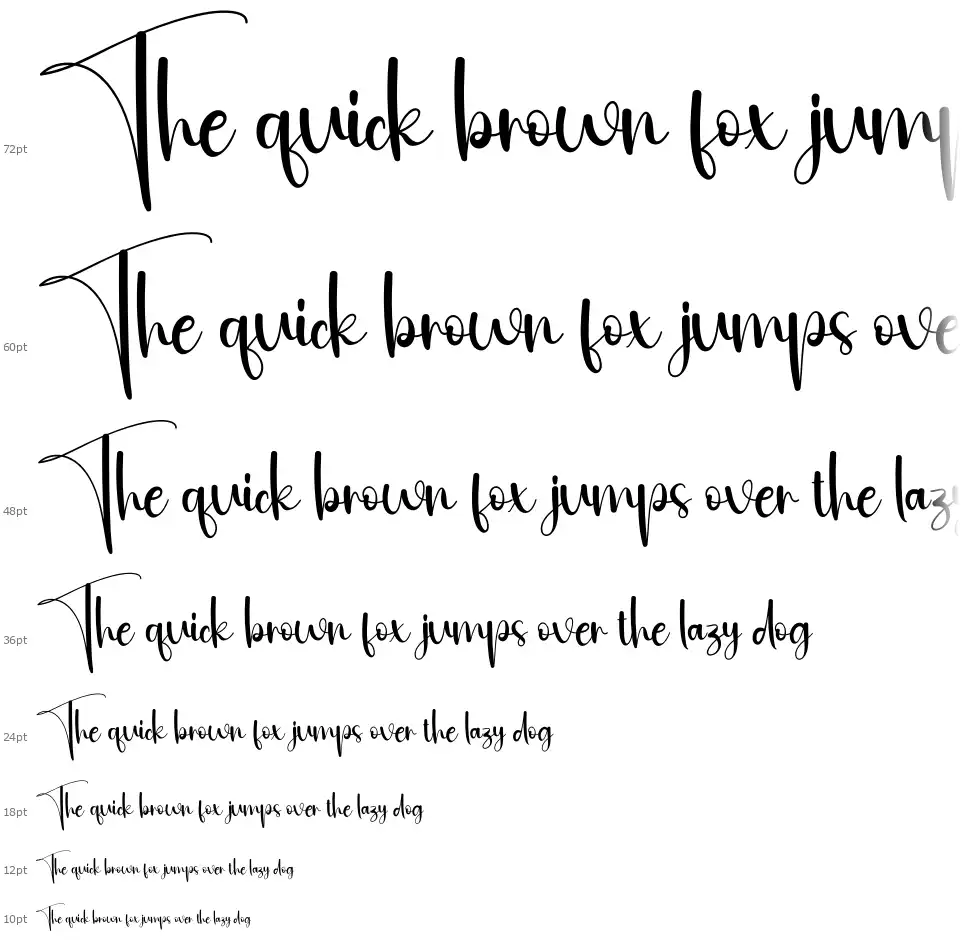 72pt The quick brown fox jump
60pt The quick brown fox jumps ove
48pt The quick brown fox jumps over the lazy
36pt The quick brown fox jumps over the lazy dog
24pt The quick brown fox jumps over the lazy dog
18pt The quick brown fox jumps over the lazy dog
12pt The quick brown fox jumps over the lazy dog
10pt The quick brown fox jumps over the lazy dog